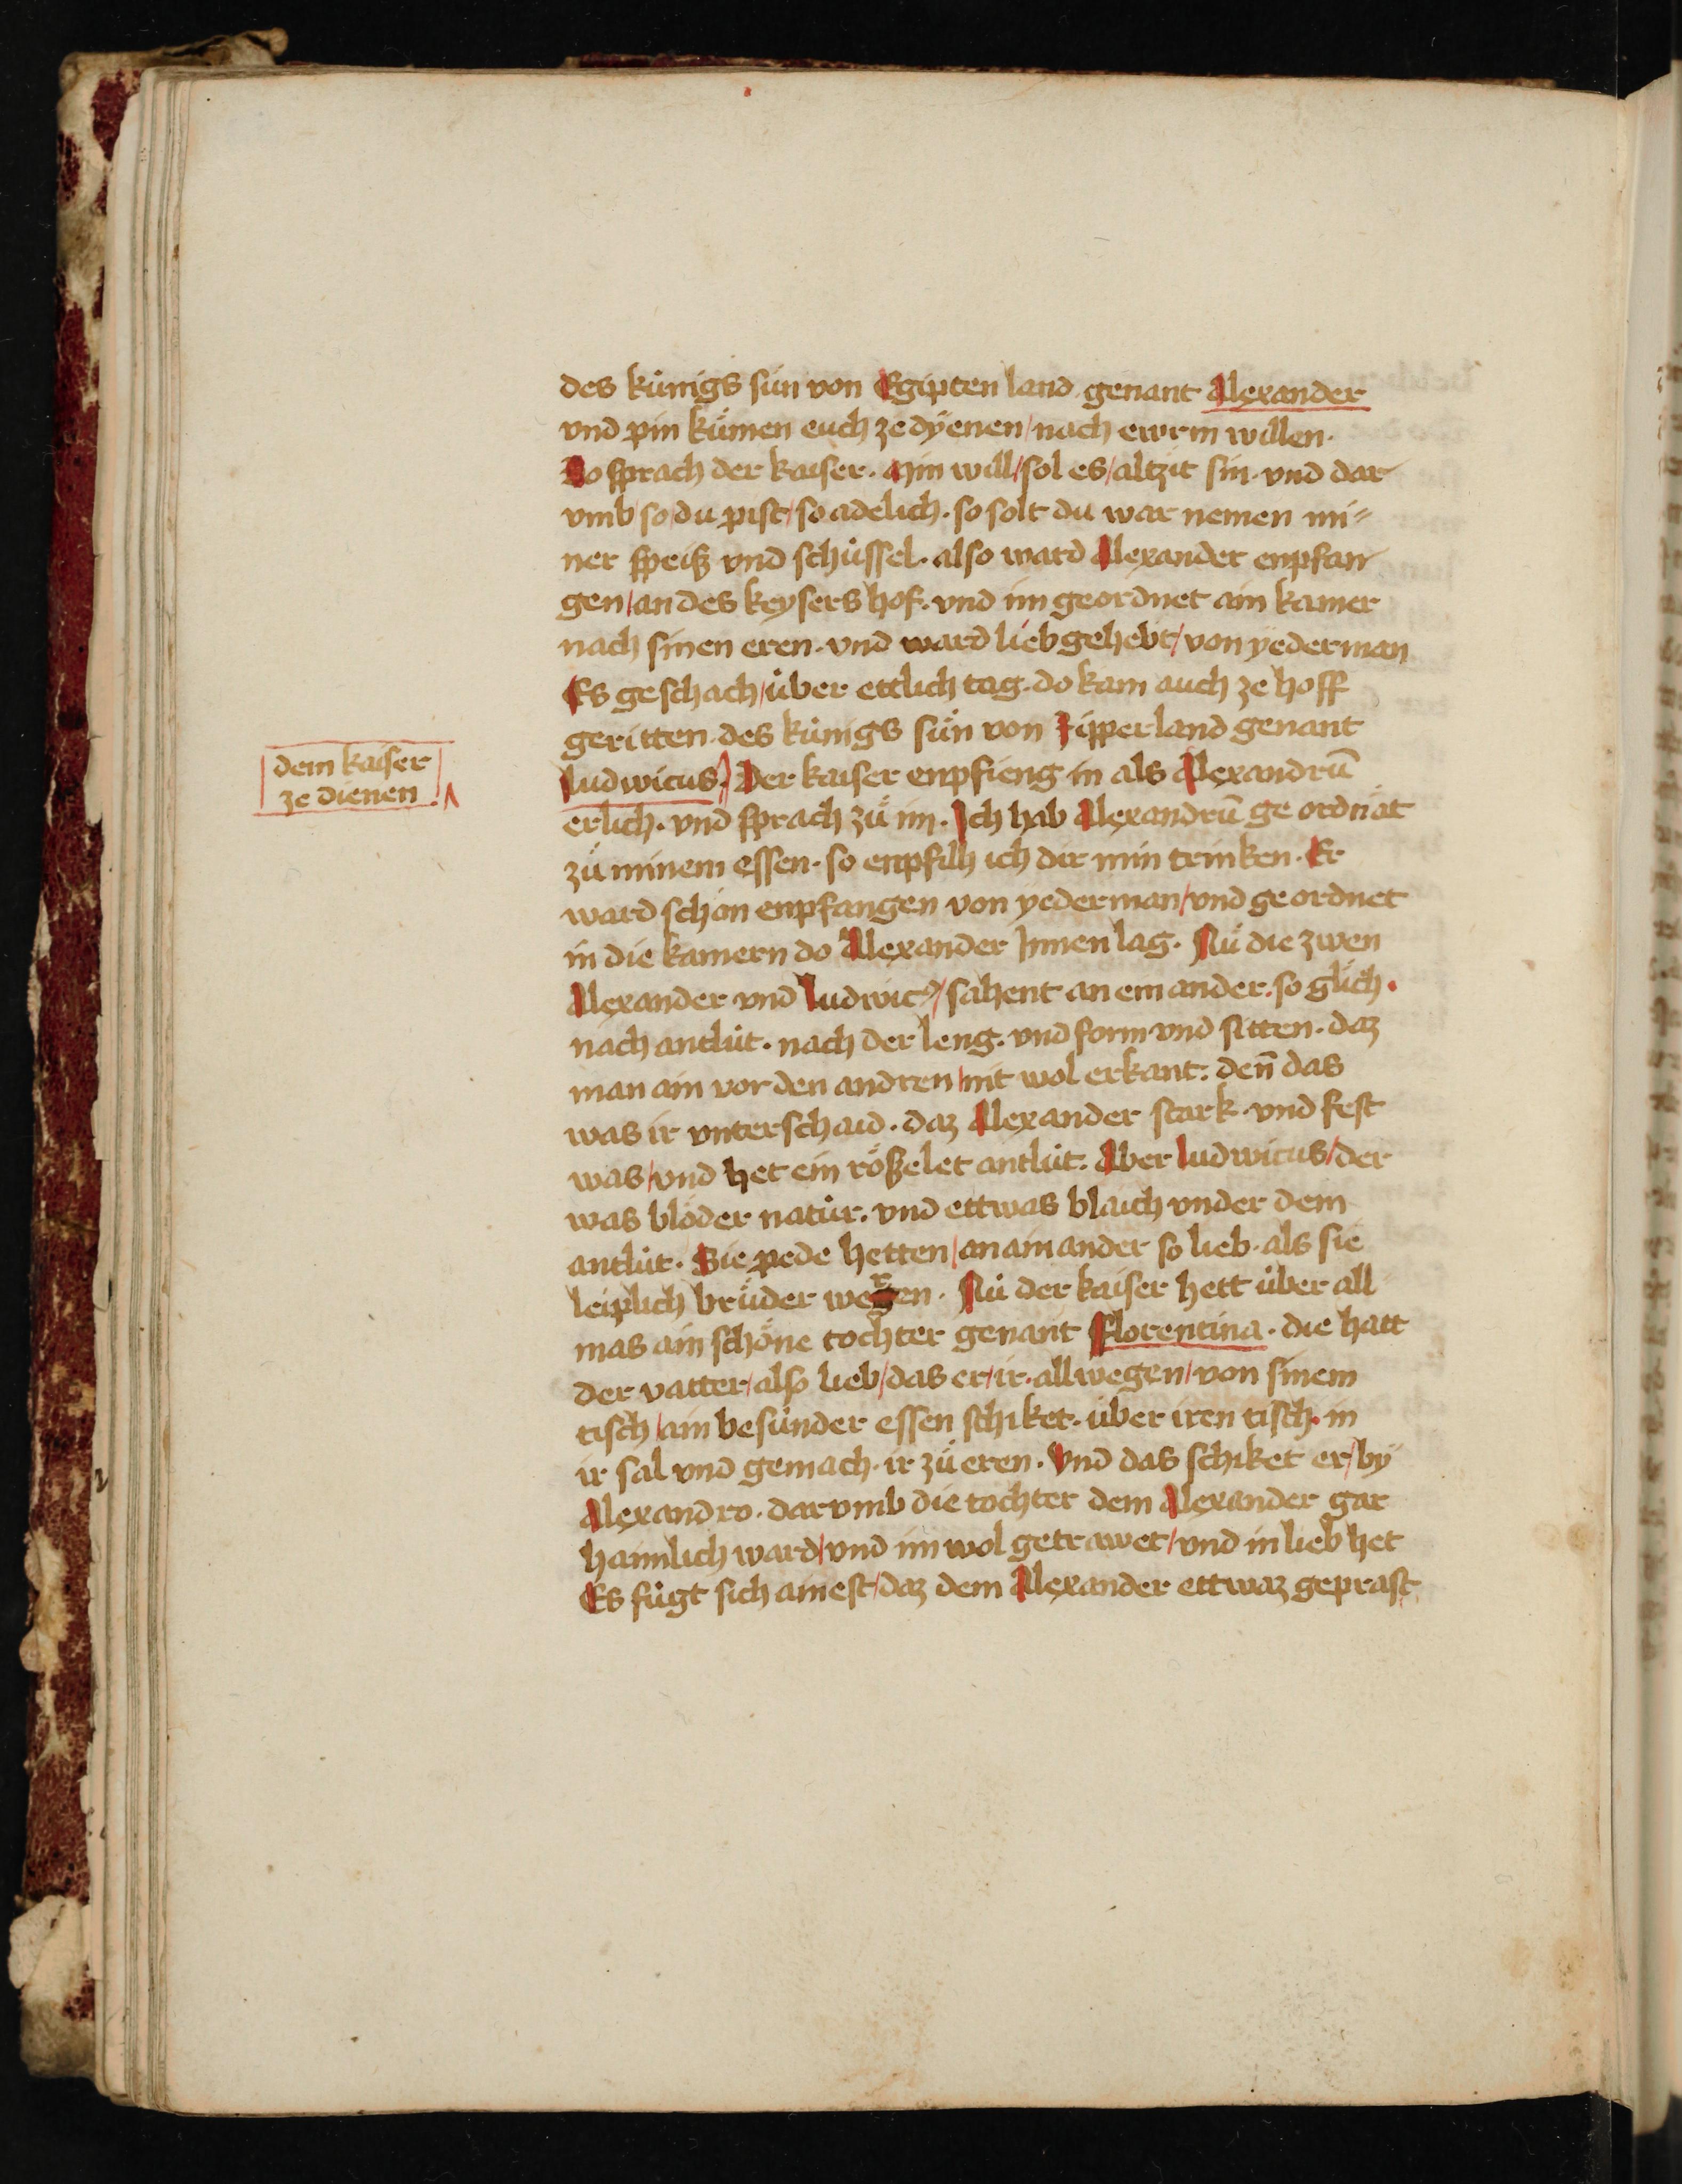 des künigs sün von Egipten land genant Alexander
vnd pin kümen euch ze dÿenen / nach ewrm willen.
Do sprach der kaiser. Min will / sol es / altzit sin. vnd dar
vmb / so / du pist / so adelich. so solt du war nemen mi=
ner speiß vnd schüssel. also ward Alexander enpfan
gen / an des keysers hof. vnd im geordnet ain kamer
nach sinen eren. vnd ward lieb gehebt / von yederman
Es geschach / über ettlich tag. do kam auch ze hoff
geritten. des künigs sün von Zipperland genant
dem kaiser
ze dienen
ludwicus. Der kaiser enpfieng in als Alexandrū
erlich. vnd sprach zü im. Ich hab Alexandrū ge ordnät
zü minem essen. so enpfilh ich dir min trinken. Er
ward schön enpfangen von yederman / vnd geordnet
in die kamern do Alexander Jnnen lag. Nü die zwen
Alexander vnd ludwicꝰ / sahent an em ander. so glich.
nach antlüt. nach der leng. vnd form vnd sitten. daz
man ain vor den andren / nit wol erkant. den̄ das
was ir vnterschaid. daz Alexander stark. vnd fest
was / vnd het ein rößelet antlüt. Aber ludwicus / der
was blöder natür. vnd ettwas blaich vnder dem
antlüt. Sie pede hetten / an ain ander so lieb. als sie
leiplich brüder weren. Nü der kaiser hett über all
mas ain schöne tochter genant Florentina. die hatt
der vatter / also lieb / das er / ir. allwegen / von sinem
tisch / ain besünder essen schiket. über iren tisch. in
ir sal vnd gemach. ir zü eren. Vnd das schiket er / bÿ
Alexandro. dar vmb die tochter dem Alexander gar
haimlich ward / vnd im wol getrawet / vnd in lieb het
Es fügt sich ainest / daz dem Alexander ettwaz geprast